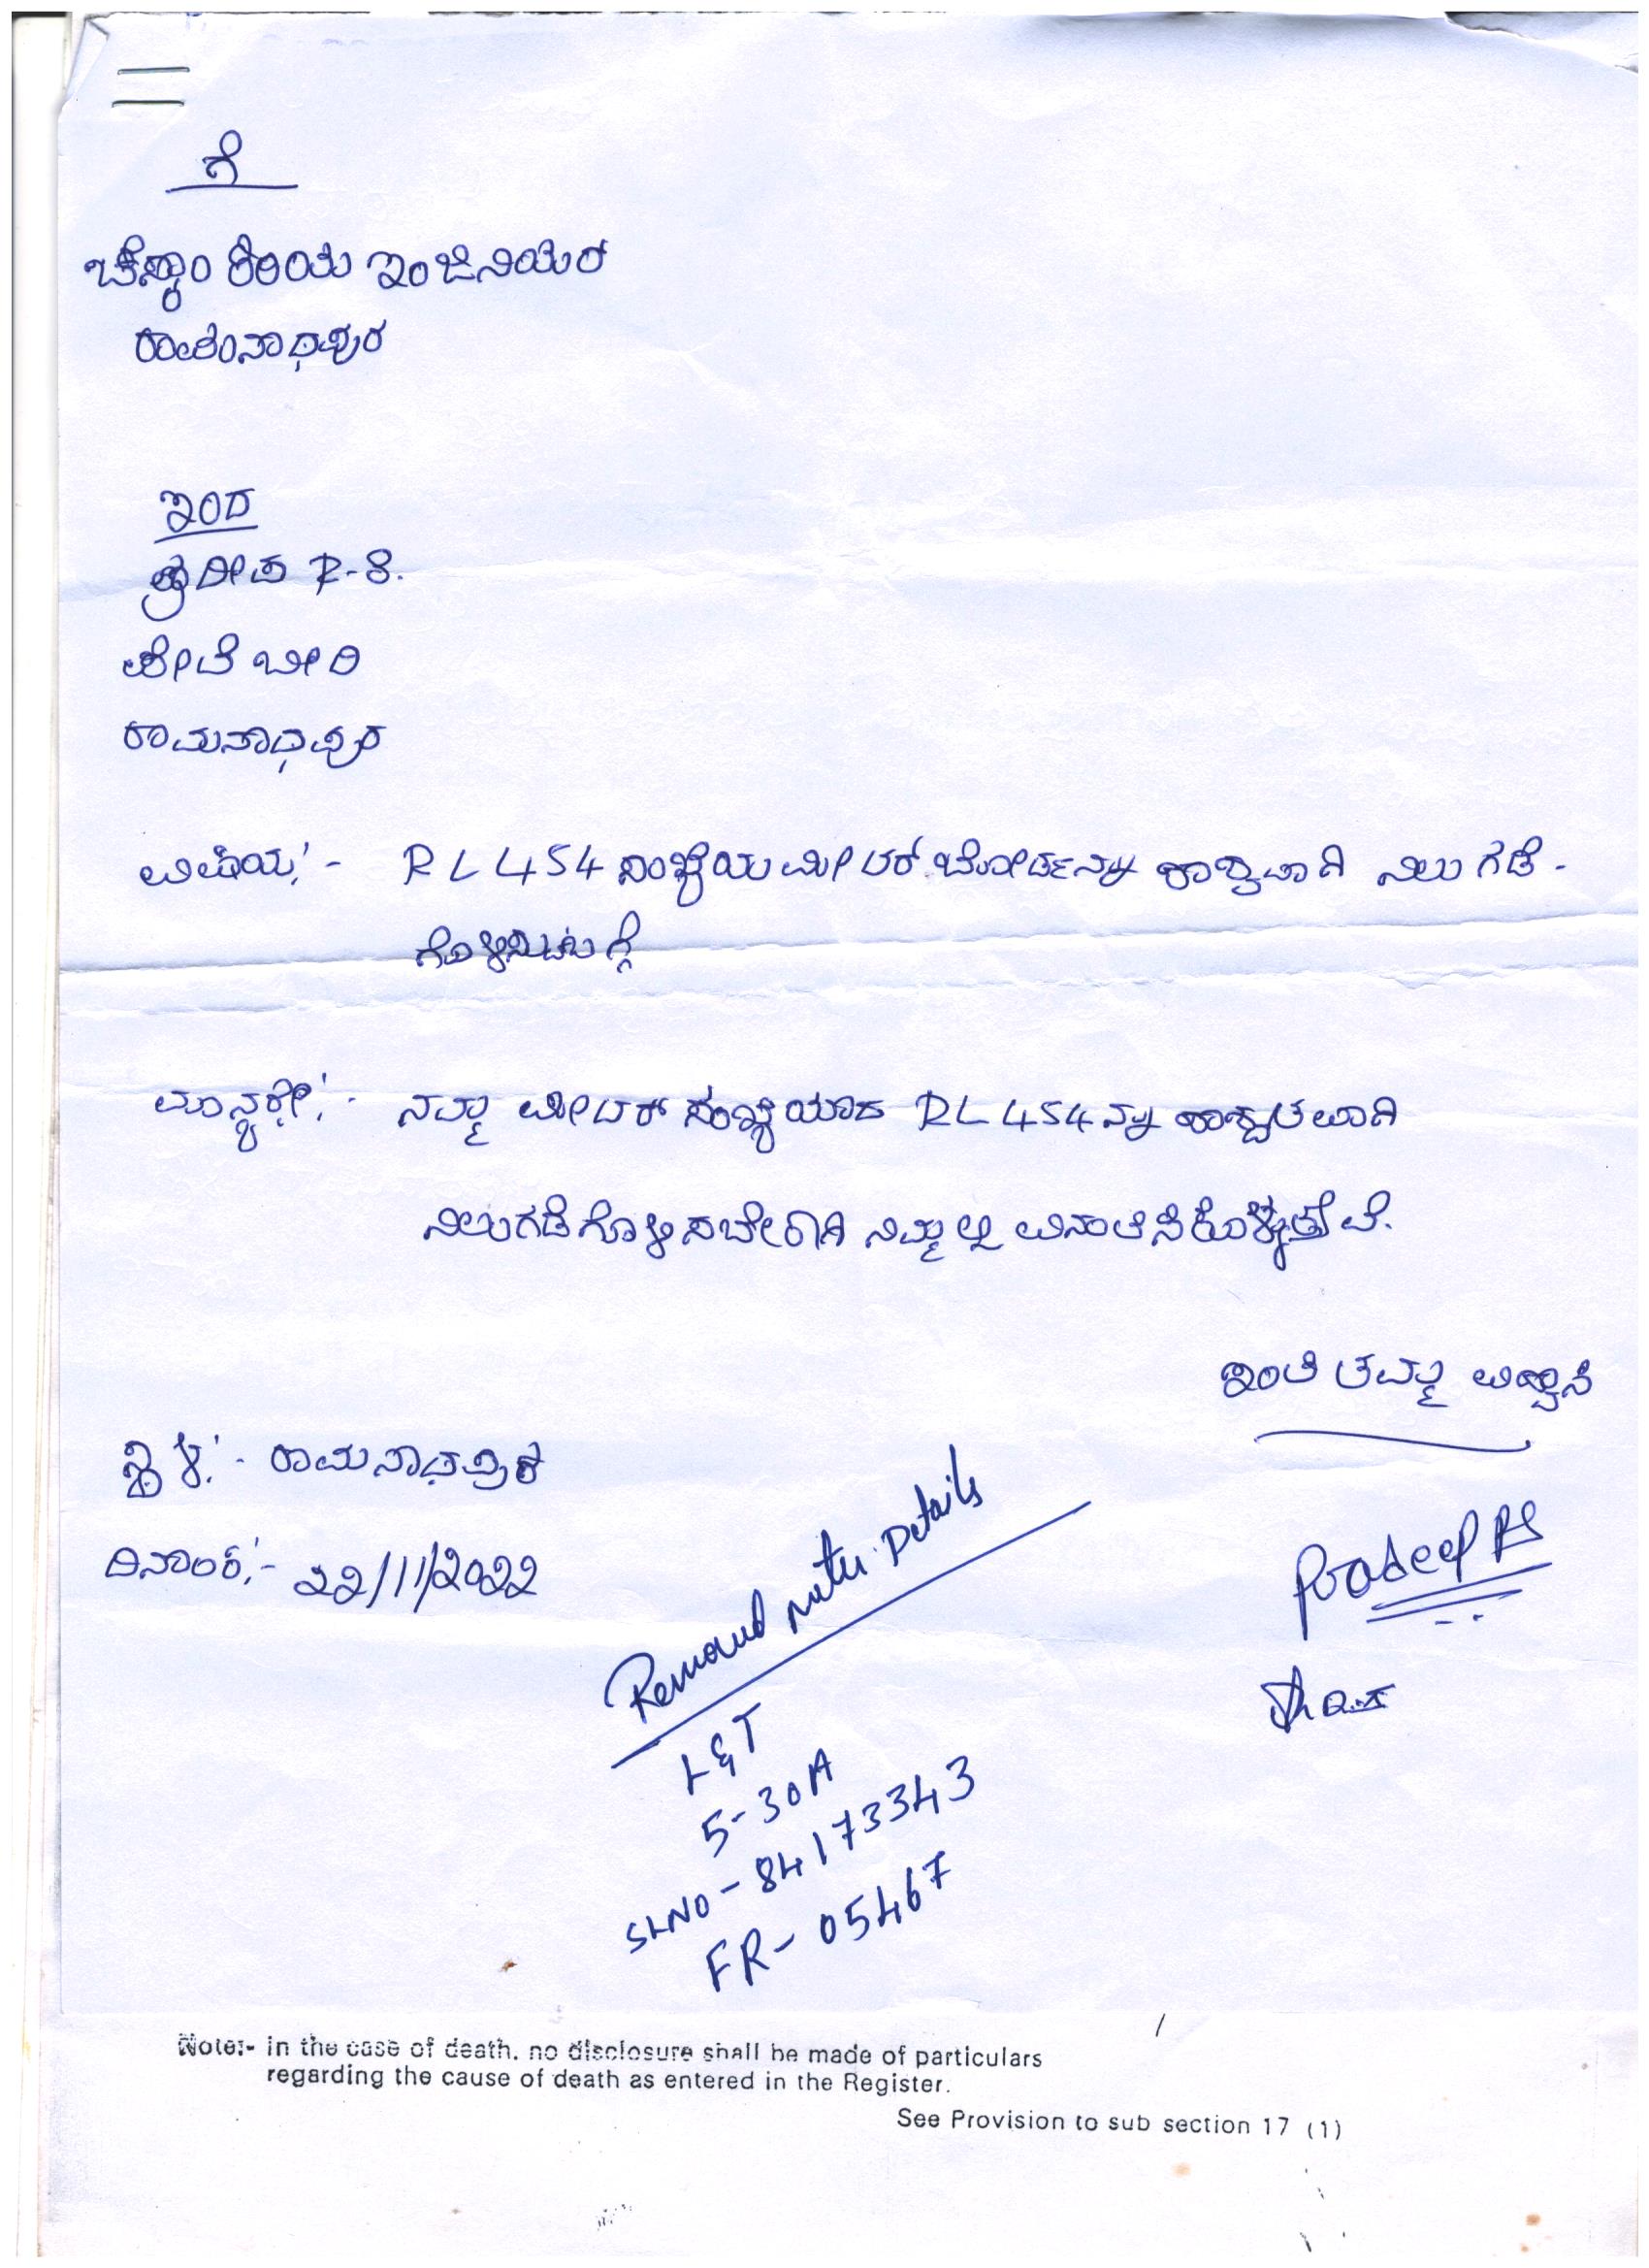 ಗೆ
ಚೆಸ್ಕಾಂ ಕಿರಿಯ ಇಂಜಿನಿಯರ್
ರಾಮನಾಥಪುರ
ಇಂದ
ಪ್ರದೀಪ R-S.
ಪೇಟೆ ಬೀದಿ
ರಾಮನಾಥಪುರ
ವಿಷಯ:- RL 454 ಸಂಖ್ಯೆಯ ಮೀಟರ್ ಬೋರ್ಡನ್ನು ಶಾಶ್ವತವಾಗಿ ನಿಲುಗಡೆ-
ಗೊಳಿಸುವ ಬಗ್ಗೆ
ಮಾನ್ಯರೇ:- ನಮ್ಮ ಮೀಟರ್ ಸಂಖ್ಯೆಯಾದ RL 454 ನ್ನು ಶಾಶ್ವತವಾಗಿ
ನಿಲುಗಡೆಗೊಳಿಸಬೇಕಾಗಿ ನಿಮ್ಮಲ್ಲಿ ವಿನಂತಿಸಿಕೊಳ್ಳುತ್ತೇವೆ.
ಇಂತಿ ತಮ್ಮ ವಿಶ್ವಾಸಿ
ಸ್ಥಳ:- ರಾಮನಾಥಪುರ
ದಿನಾಂಕ:- 22/11/2022
Pradeep RS
Removed meter Details
L&T
5-30A
SLNO-84173343
FR-05467
Note:- in the case of death, no disclosure shall be made of particulars
regarding the cause of death as entered in the Register.
See Provision to sub section 17 (1)